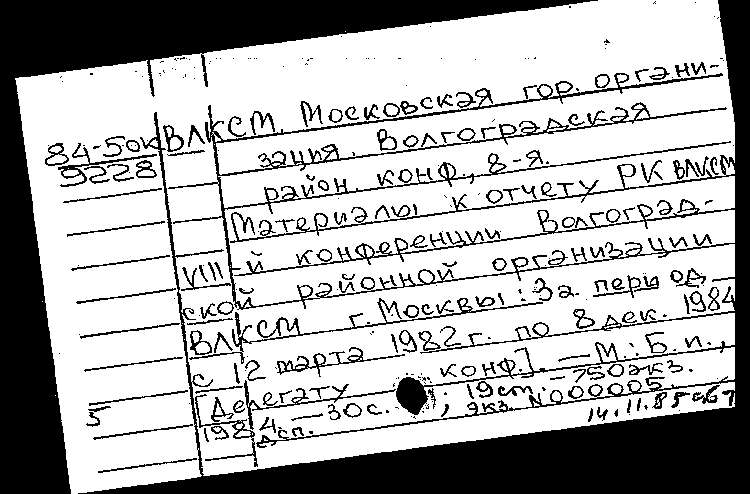 84-5ок ВЛКСМ. Московская гор. органи-
9228 зация. Волгоградская
район. конф., 8-я.
Материалы к отчету РК ВЛКСМ
VIII-й конференции Волгоград-
ской районной организации
ВЛКСМ г. Москвы: За период
с 12 марта 1982 г. по 8 дек. 1984
[Делегату конф.]. — М.: Б.и.,
5 1984. — 30 с.; 19 см. — 750 экз.
дсп. экз. N000005.
14.11.85